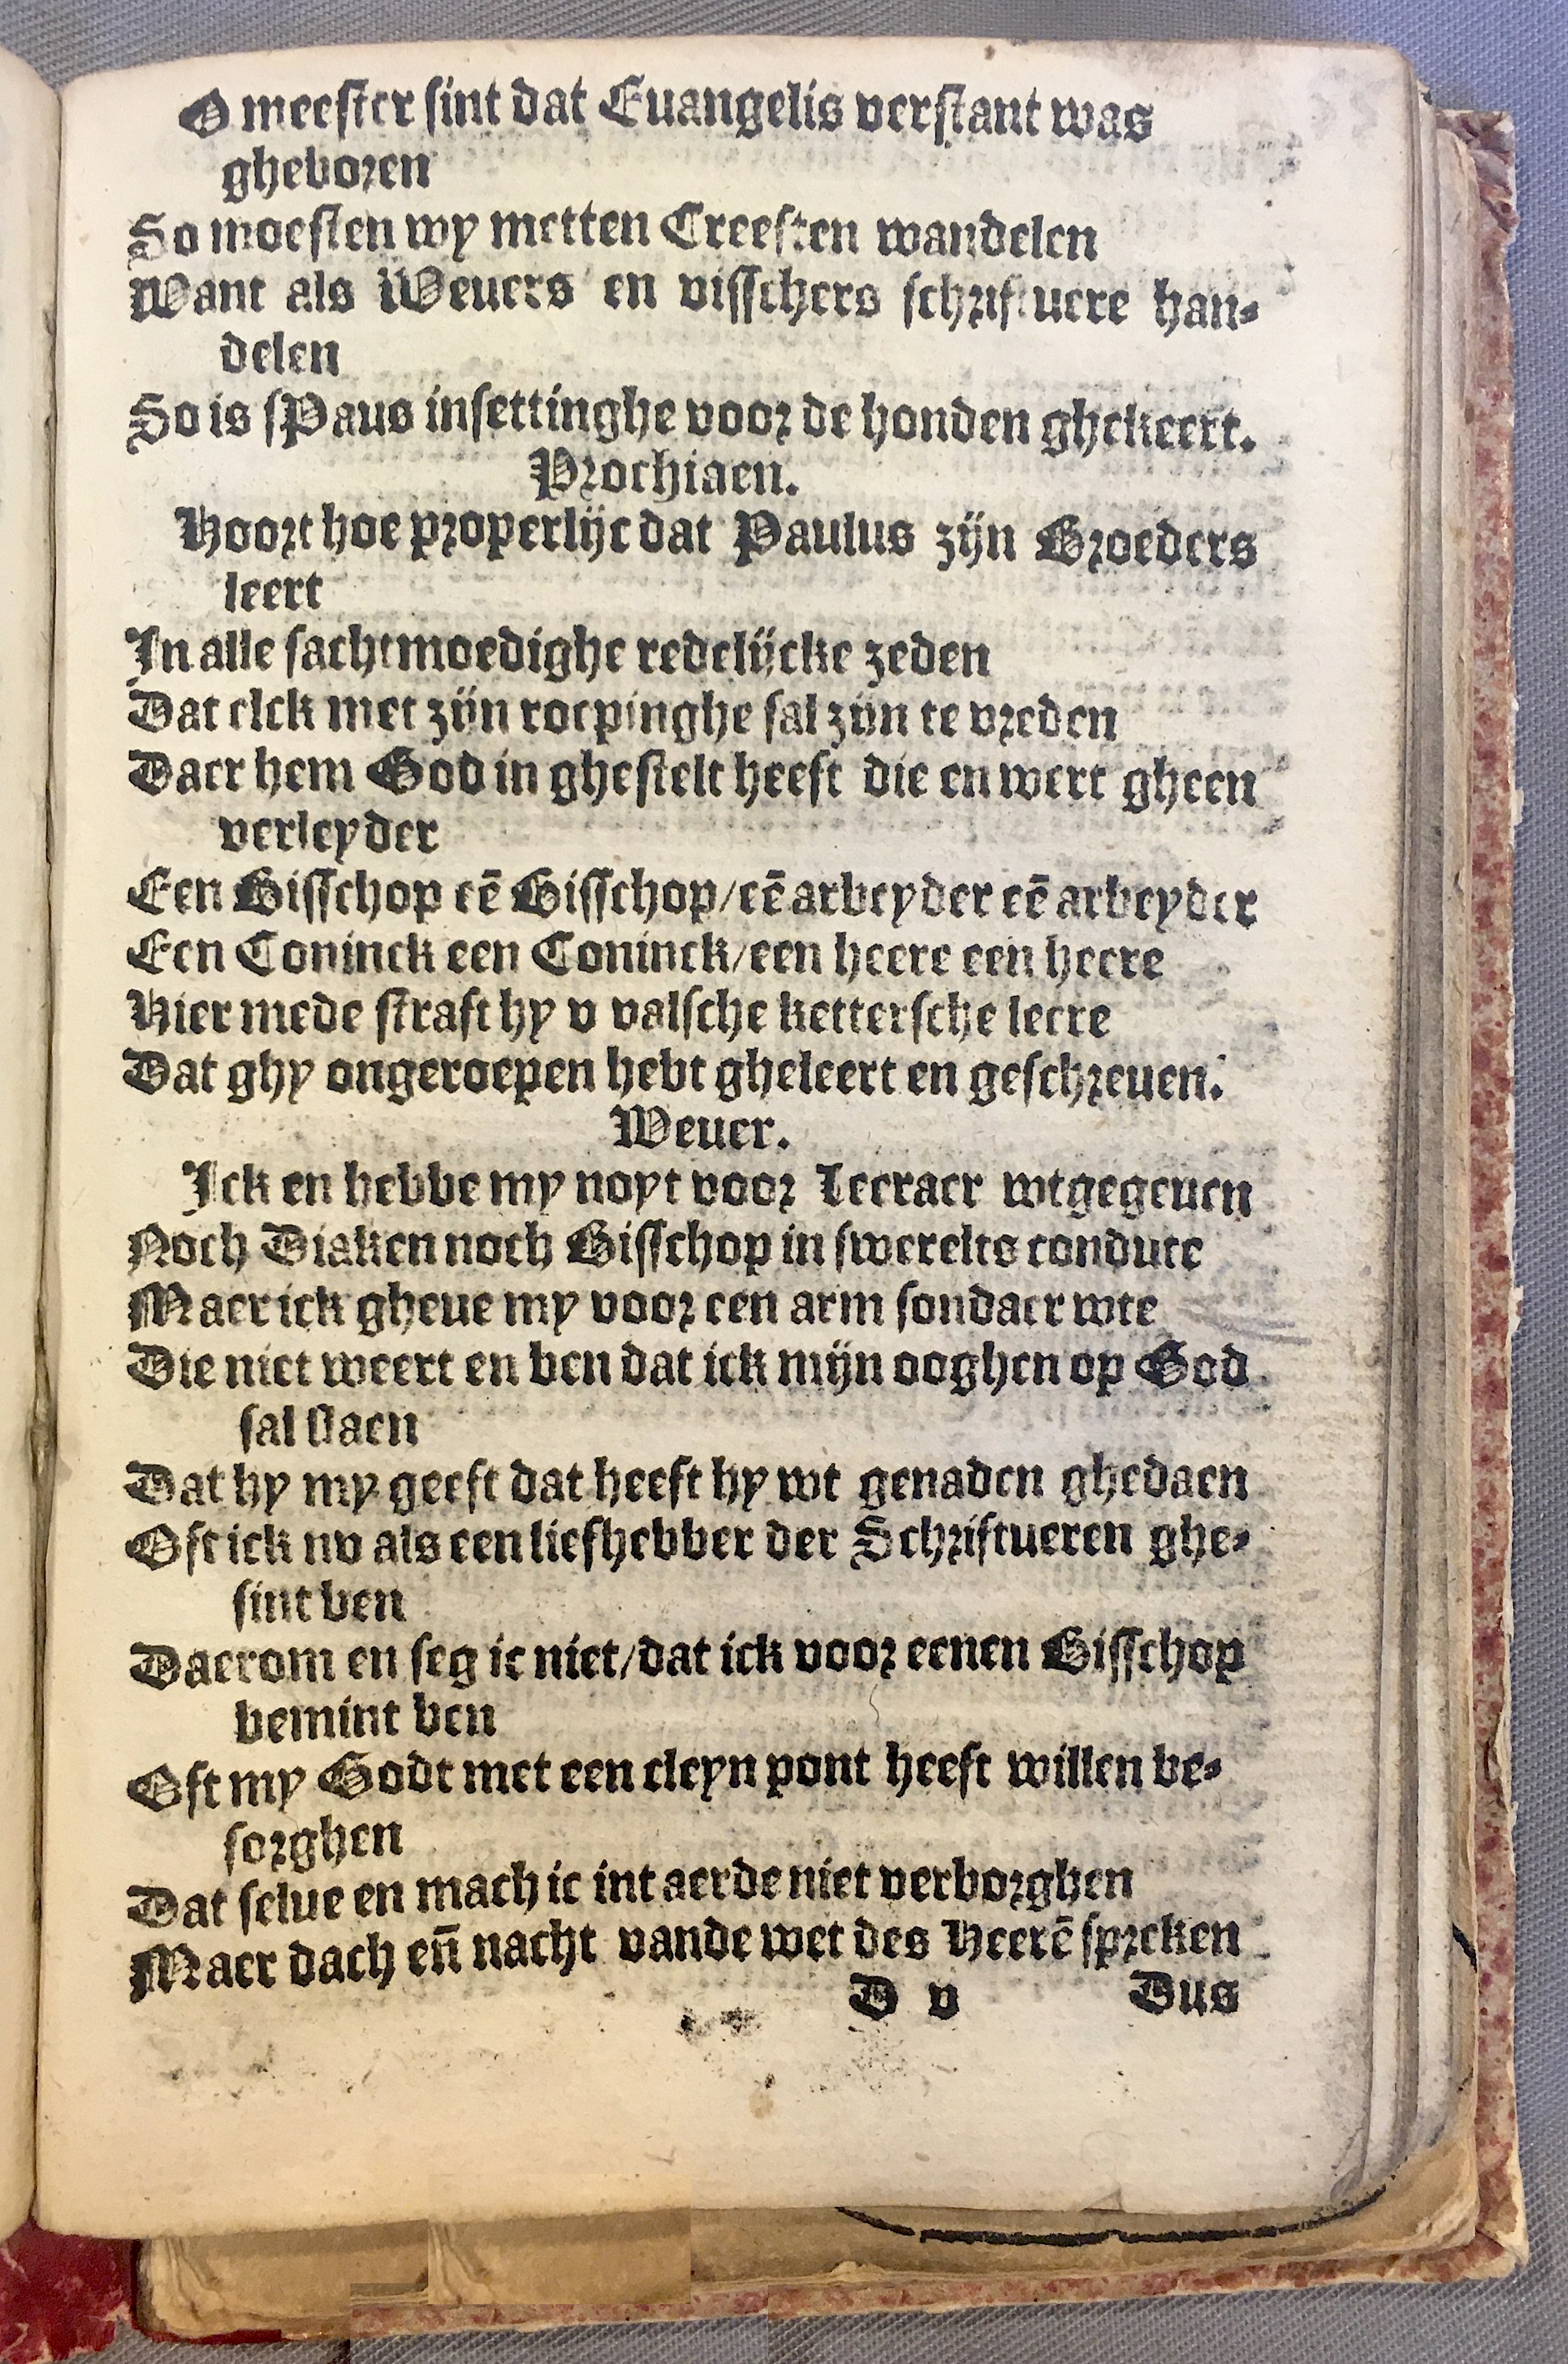 O meester sint dat Euangelis verstant was
gheboren
So moesten wy metten Creeften wandelen
Want als Weuers en visschers schriftuere han-
delen
So is sPaus insettinghe voor de honden ghekeert.
Prochiaen.
Hoort hoe properlijc dat Paulus zijn Broeders
leert
In alle sachtmoedighe redelijcke zeden
Dat elck met zijn roepinghe sal zijn te vreden
Daer hem God in ghestelt heeft die en wert gheen
verleyder
Een Bisschop eē Bisschop/eē arbeyder eē arbeyder
Een Coninck een Coninck/een heere een heere
Hier mede straft hy v valsche kettersche leere
Dat ghy ongeroepen hebt gheleert en geschreuen.
Weuer.
Ick en hebbe my noyt voor Leeraer wtgegeuen
Noch Diaken noch Bisschop in swerelts condute
Maer ick gheue my voor een arm sondaer wte
Die niet weert en ben dat ick mijn ooghen op God
sal slaen
Dat hy my geeft dat heeft hy wt genaden ghedaen
Oft ick nv als een liefhebber der Schriftueren ghe-
sint ben
Daerom en seg ic niet/dat ick voor eenen Bisschop
bemint ben
Oft my Godt met een cleyn pont heeft willen be-
sorghen
Dat selue en mach ic int aerde niet verborghen
Maer dach eñ nacht vande wet des Heerē spreken
D v Dus